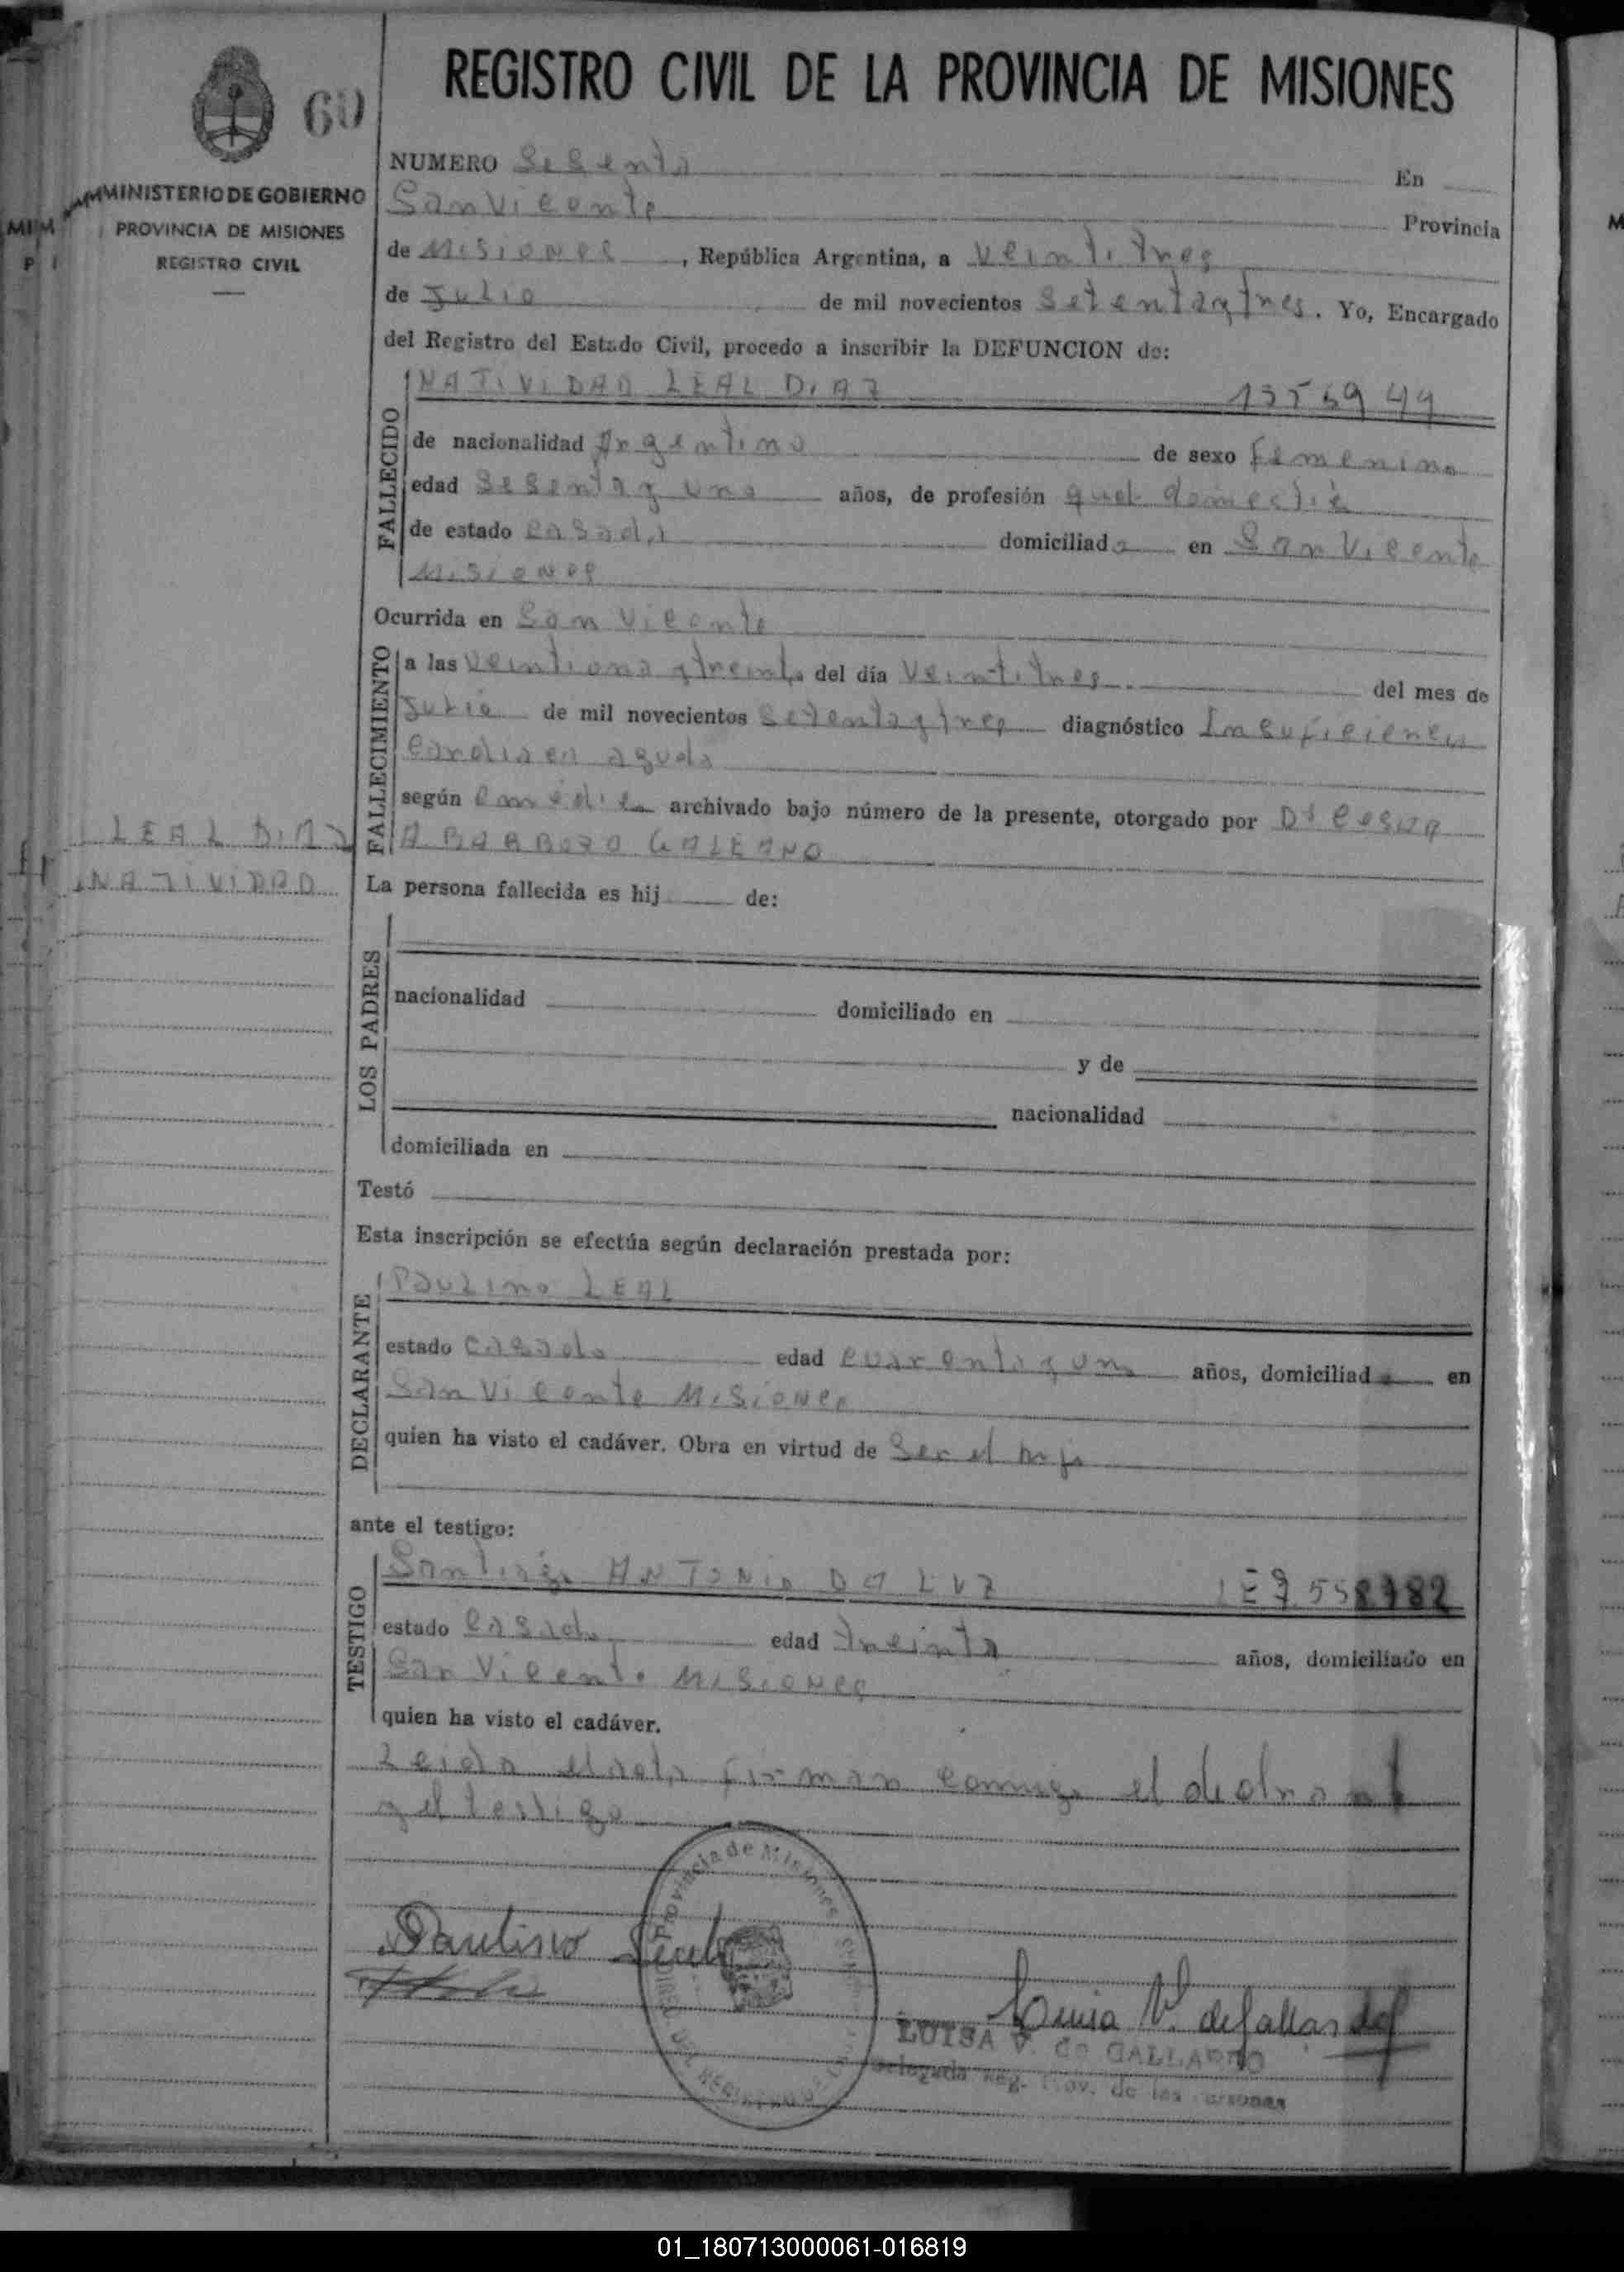 REGISTRO CIVIL DE LA PROVINCIA DE MISIONES
60
MINISTERIO DE GOBIERNO
PROVINCIA DE MISIONES
REGISTRO CIVIL
NUMERO Sesenta En
San Vicente Provincia
de Misiones, República Argentina, a veintitres
de Julio de mil novecientos setentaytres. Yo, Encargado
del Registro del Estado Civil, procedo a inscribir la DEFUNCION de:
FALLECIDO
NATIVIDAD LEAL DIAZ
de nacionalidad Argentina de sexo femenino
edad Sesentayuno años, de profesión
de estado casada domiciliada en San Vicente
Misiones
Ocurrida en San Vicente
FALLECIMIENTO
a las veintiuna y treinta del día veintitres del mes de
Julio de mil novecientos setentaytres diagnóstico Insuficiencia
cardiaca aguda
según archivado bajo número de la presente, otorgado por
A BARBOZO GALEANO
LEAL DIAZ
NATIVIDAD
La persona fallecida es hij de:
LOS PADRES
nacionalidad domiciliado en
y de
nacionalidad
domiciliada en
Testó
Esta inscripción se efectúa según declaración prestada por:
DECLARANTE
Paulino LEAL
estado casado edad cuarentayuno años, domiciliado en
San Vicente Misiones
quien ha visto el cadáver. Obra en virtud de Ser el hijo
ante el testigo:
TESTIGO
Santiago ANTONIO DA LUZ
estado casado edad treinta años, domiciliado en
San Vicente Misiones
quien ha visto el cadáver.
Leida el acta firman conmigo el
y el testigo
Provincia de Misiones
Paulino Leal
Luisa V. de Gallardo
LUISA V. de GALLARDO
Delegada Reg. Prov. de las Personas
01_180713000061-016819